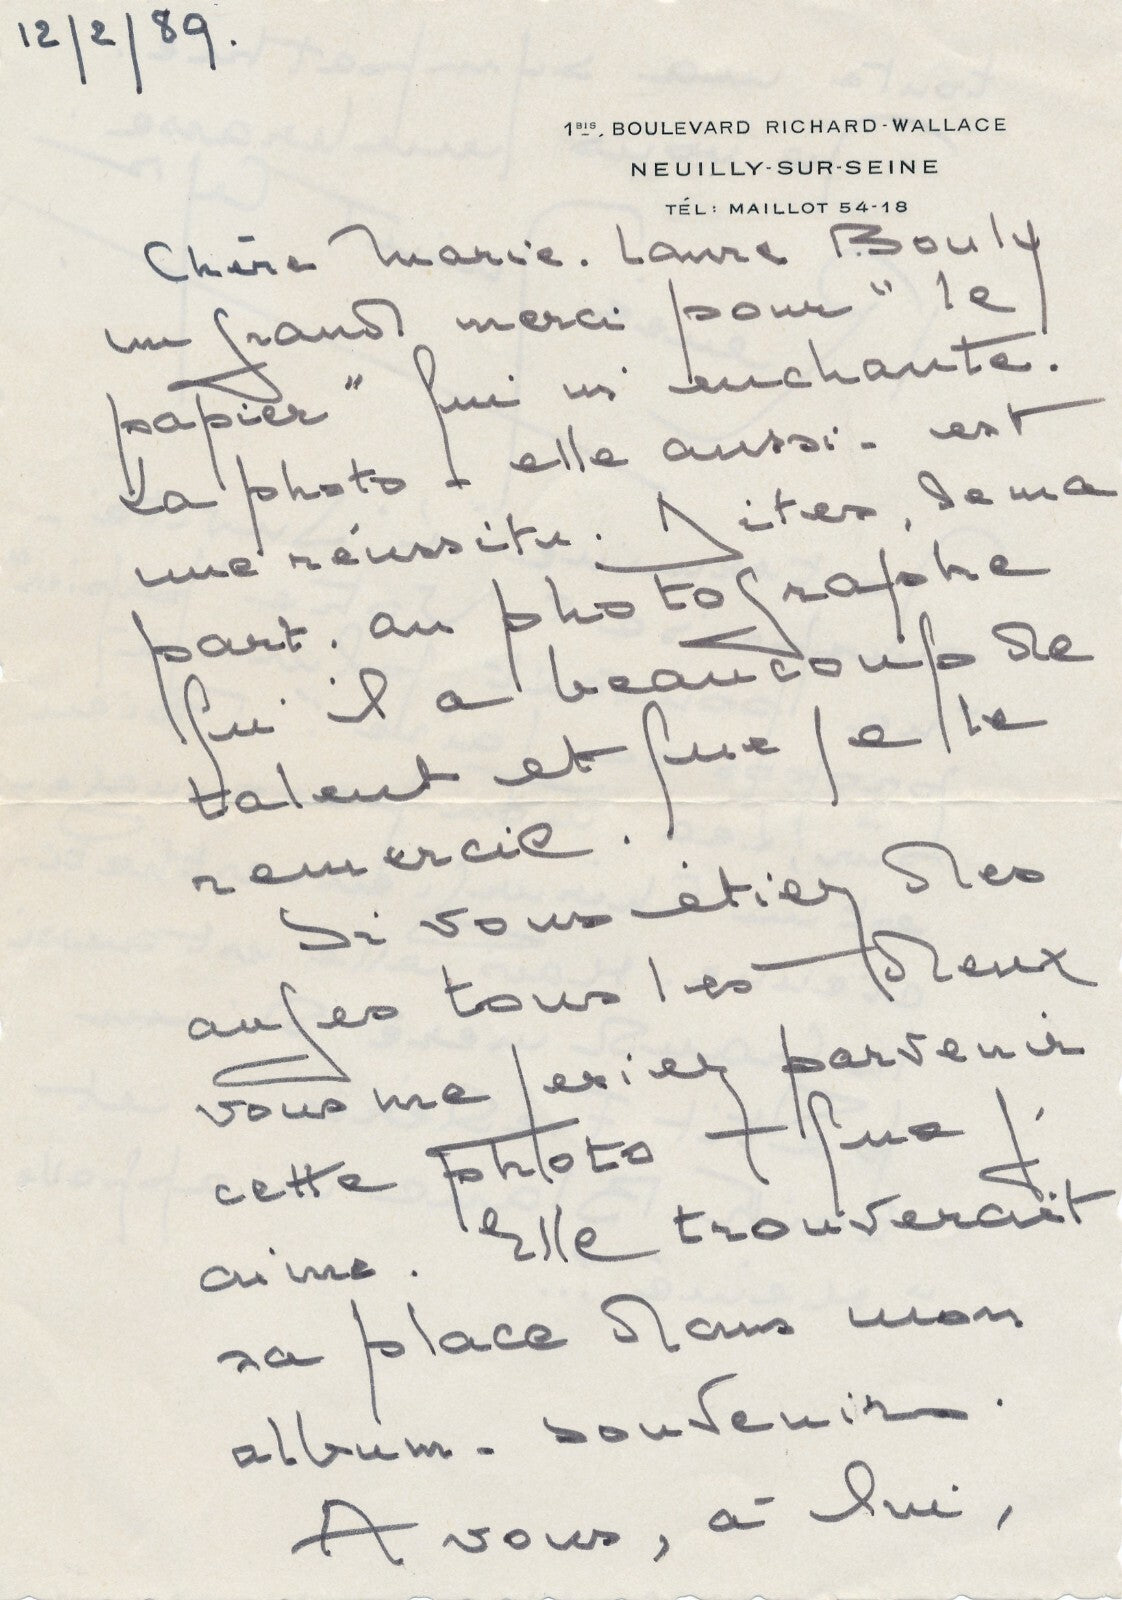 12/2/89.
1BIS, BOULEVARD RICHARD-WALLACE
NEUILLY-SUR-SEINE
TÉL: MAILLOT 54-18
Chère Marie. Laure Bouly
un grand merci pour "le
papier" qui m'enchante.
La photo - elle aussi - est
une réussite. Dites, de ma
part. au photographe
qu'il a beaucoup de
talent et que je le
remercie.
Si vous étiez des
anges tous les deux
vous me feriez parvenir
cette photo - que j'
aime. Elle trouverait
sa place dans mon
album - souvenirs.
A vous, à lui,